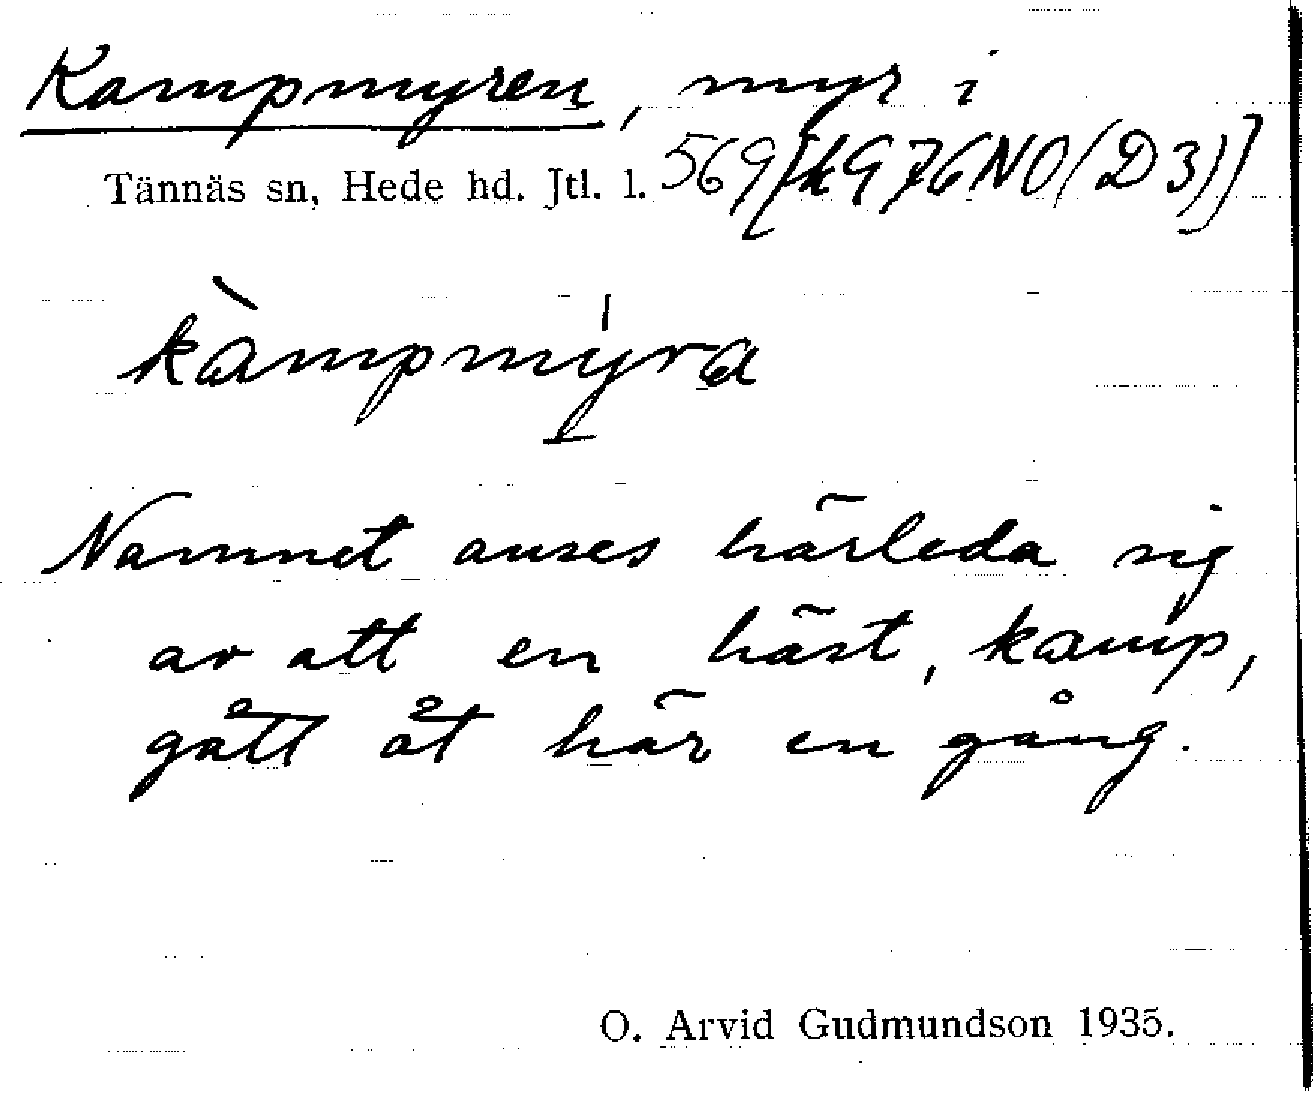 Kampmyren, myr i
Tännäs sn, Hede hd. Jtl. l. 569 [k976NO(D3)]
kàmpmy̍ra
Namnet anses härleda sig
av att en häst, kamp,
gått åt här en gång.
O. Arvid Gudmundson 1935.